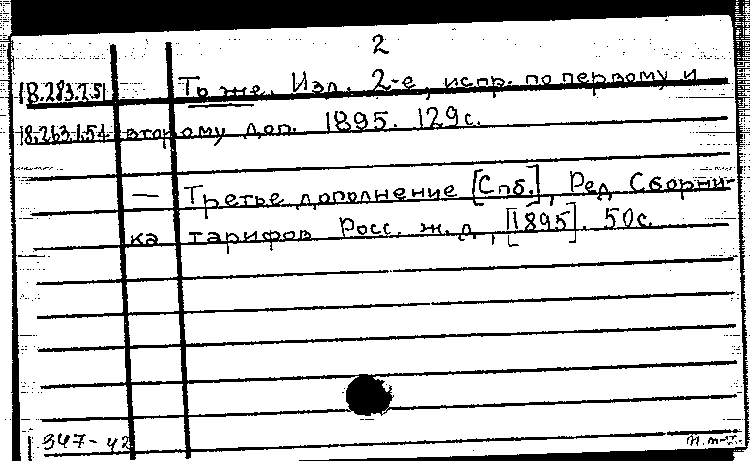 2
18.283.7.51 То же. Изд. 2-е, испр. по первому и
18.263.1.54 второму доп. 1895. 129с.
— Третье дополнение [Спб.], Ред. Сборни-
ка тарифов Росс. ж. д., [1895]. 50с.
347-42